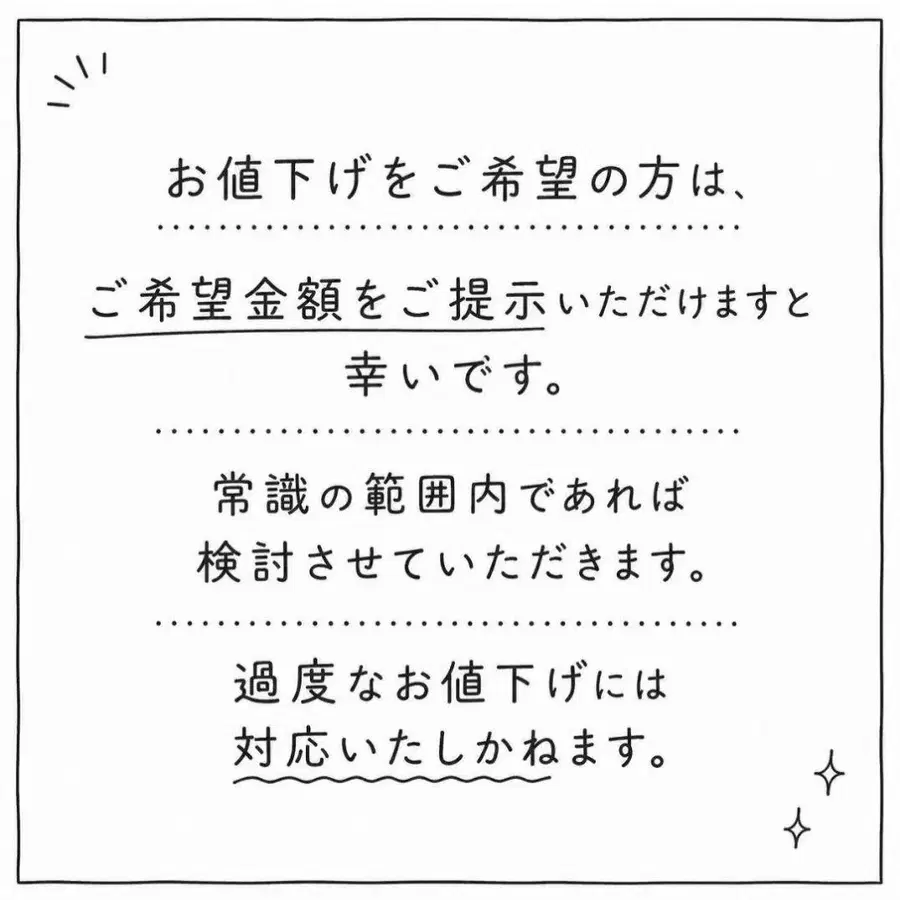 お値下げをご希望の方は、
ご希望金額をご提示いただけますと
幸いです。
常識の範囲内であれば
検討させていただきます。
過度なお値下げには
対応いたしかねます。